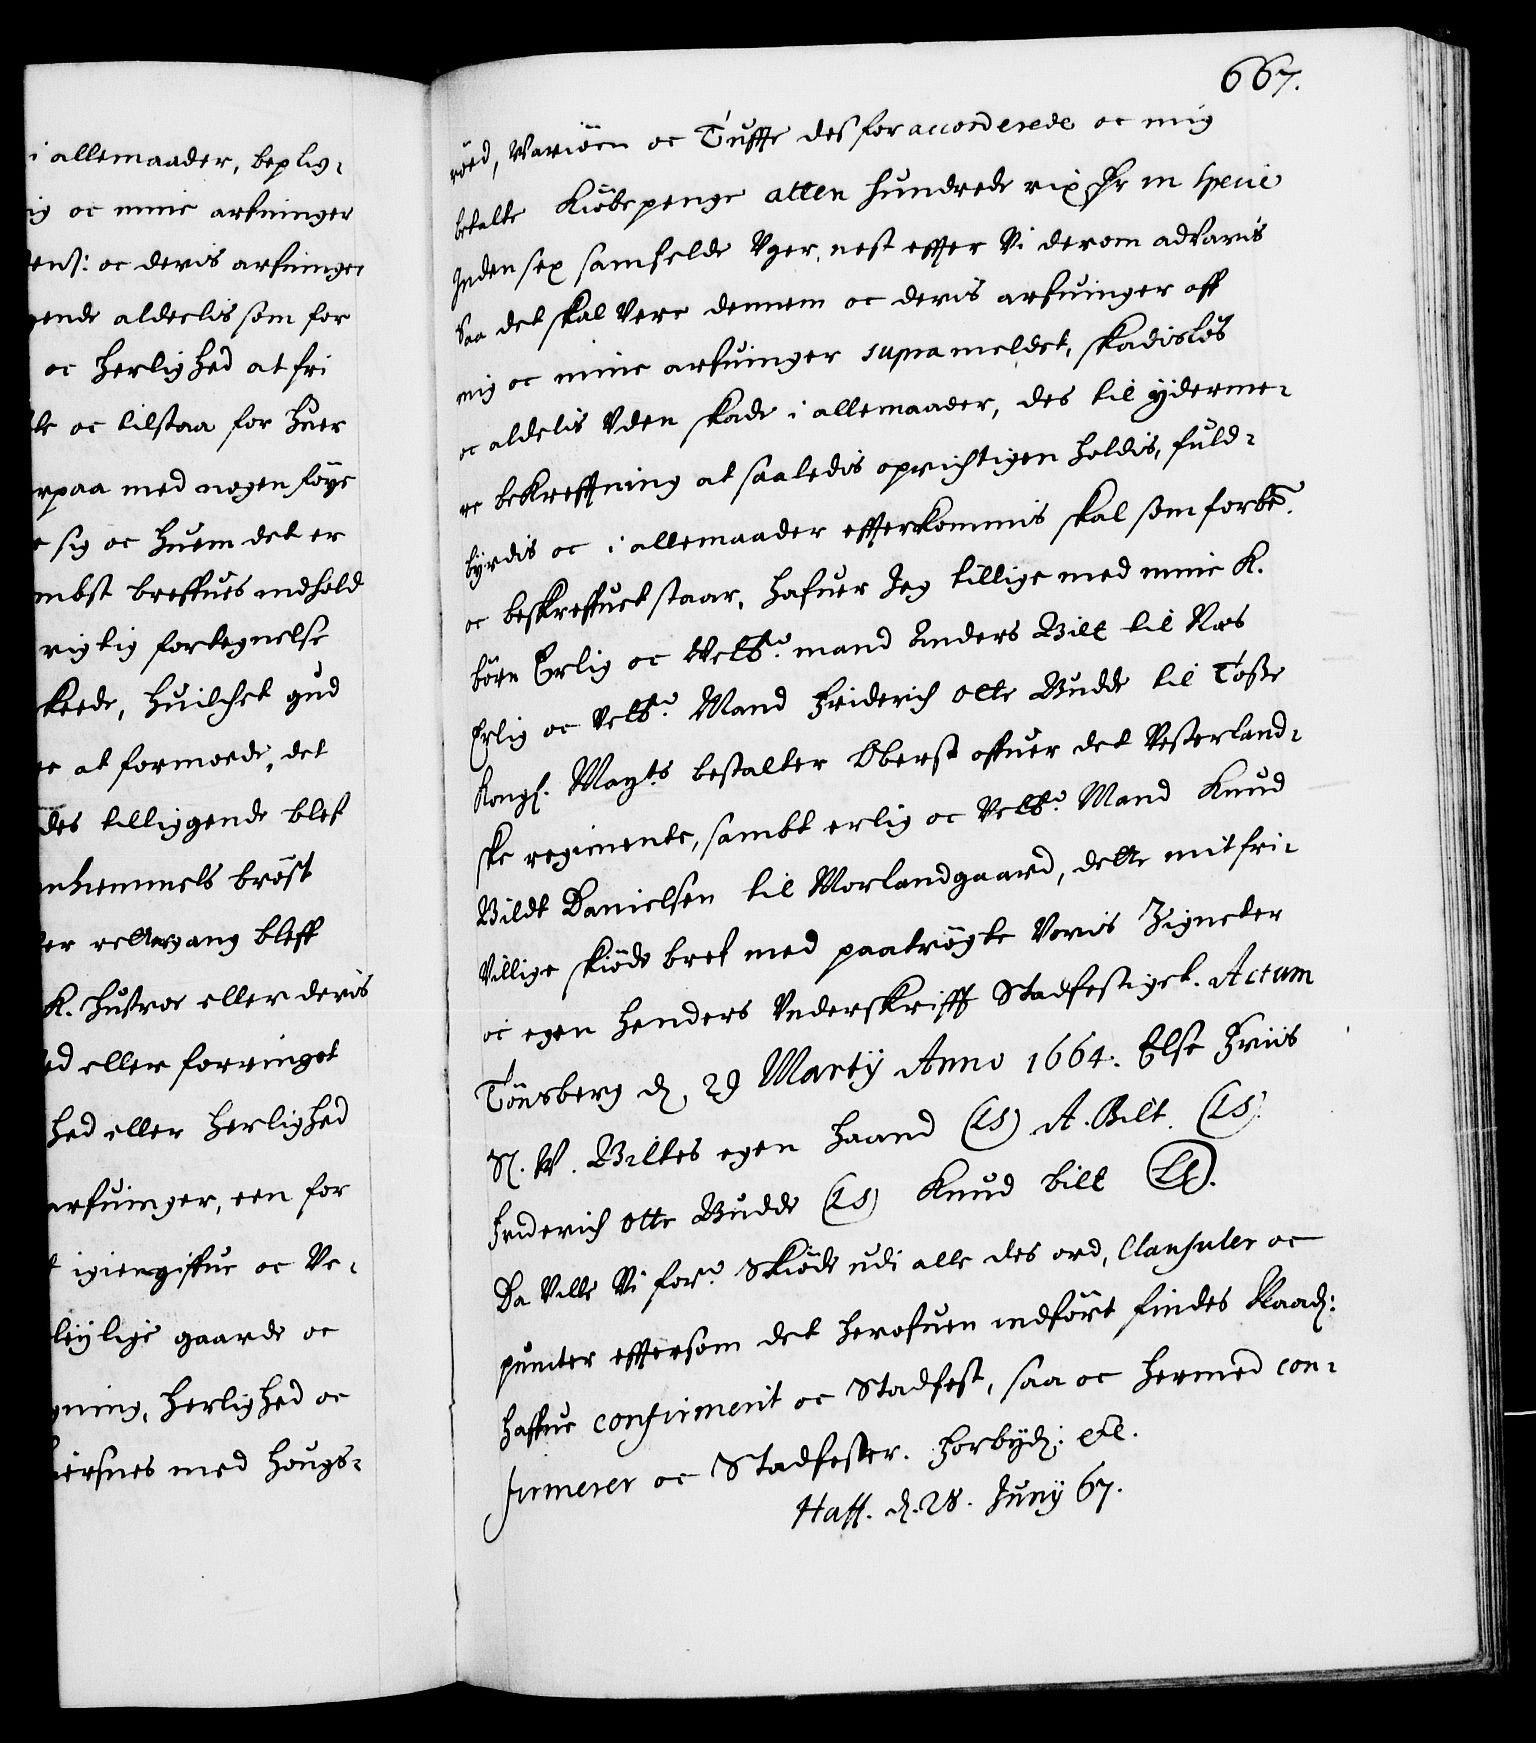 i allemaader, beplig-
ig oc mine arfuinger
ens: oc deris arfuinger
gende aldeelis som for
oc herlighed at fri
de oc tilstaa for huer
rpaa med nogen föye
e sig oc huem det er
mbst breffues indhold
rigtig fortegnelse
keede, huilchet gud
re at formoede, det
des tilliggende blef
nhemmels bröst
er rettergang bleff
K. hustroe eller deris
ed eller forringet
hed eller herlighed
arfuinger, een for
t igiengiffue oc Ve-
leylige gaarde oc
gning, herlighed oc
iersnes med hougs-
667.
röed, Wariöen oc Tuffte des for accorderede oc mig
betalte Kiöbepenge atten hundrede rix dr in specie
Inden sex samfelde Vger, nest effter Vi derom advaris
Saa det skal Vere dennem oc deris arfuinger aff
mig oc mine arfuinger supra meldet, skadislös
oc aldelis Vden skade i allemaader, des til ÿderme-
re bekrefftning at saaledis oprichtigen holdis, fuld-
byrdis oc i allemaader effterkommis skal som forbe.
oc beskreffuet staar, hafuer Jeg tillige med mine K.
börn Erlig oc Velb. mand Anders Bilt til Næs
Erlig oc Velb. Mand Friderich Otte Budde til Tosse
Kongl. Mayts bestalter Oberst offuer det Vesterland-
ske regimente, sambt erlig oc Velb. Mand Knud
Bildt Danielsen til Morlandgaard, dette mit fri-
villige skiöde bref med paatrögte Voris Zigneter
oc egen henders Vnderskrifft Stadfestiget. Actum
Tönsberg d. 29 Martÿ Anno 1664. Else Friis
Sl. W. Biltes egen haand (LS) A. Bilt. (LS)
Friderich Otte Budde (LS) Knud bilt (LS).
Da Ville Vi for. Skiöde udi alle des ord, Clausuler oc
puncter effersom det herofuen indfört findes Naad:
haffue confirmerit oc Stadfest, saa oc hermed con-
firmerer oc Stadfester. Forbyd: etc.
Haff. d. 28. Junÿ 67.